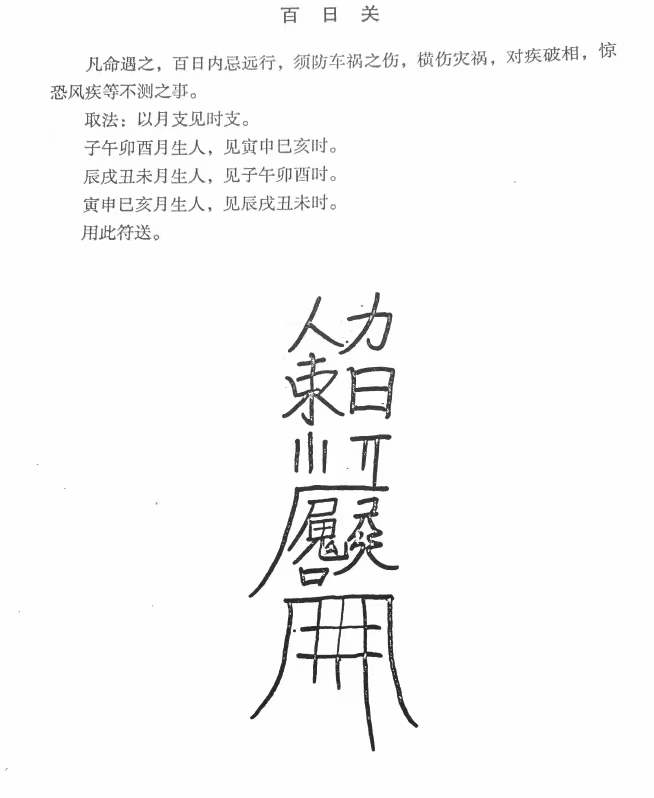 百日关
凡命遇之，百日内忌远行，须防车祸之伤，横伤灾祸，对疾破相，惊
恐风疾等不测之事。
取法：以月支见时支。
子午卯酉月生人，见寅申巳亥时。
辰戌丑未月生人，见子午卯酉时。
寅申巳亥月生人，见辰戌丑未时。
用此符送。